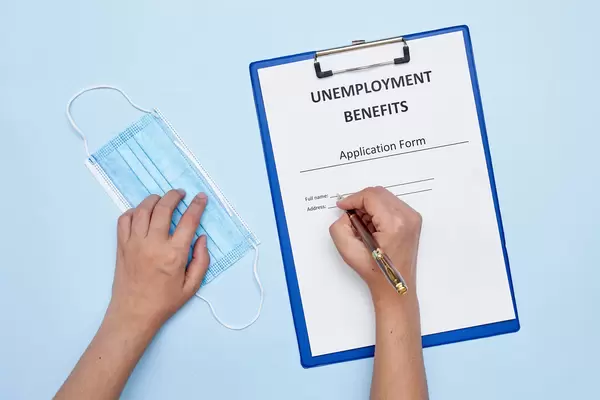 UNEMPLOYMENT
BENEFITS
Application Form
Full name:
Address: